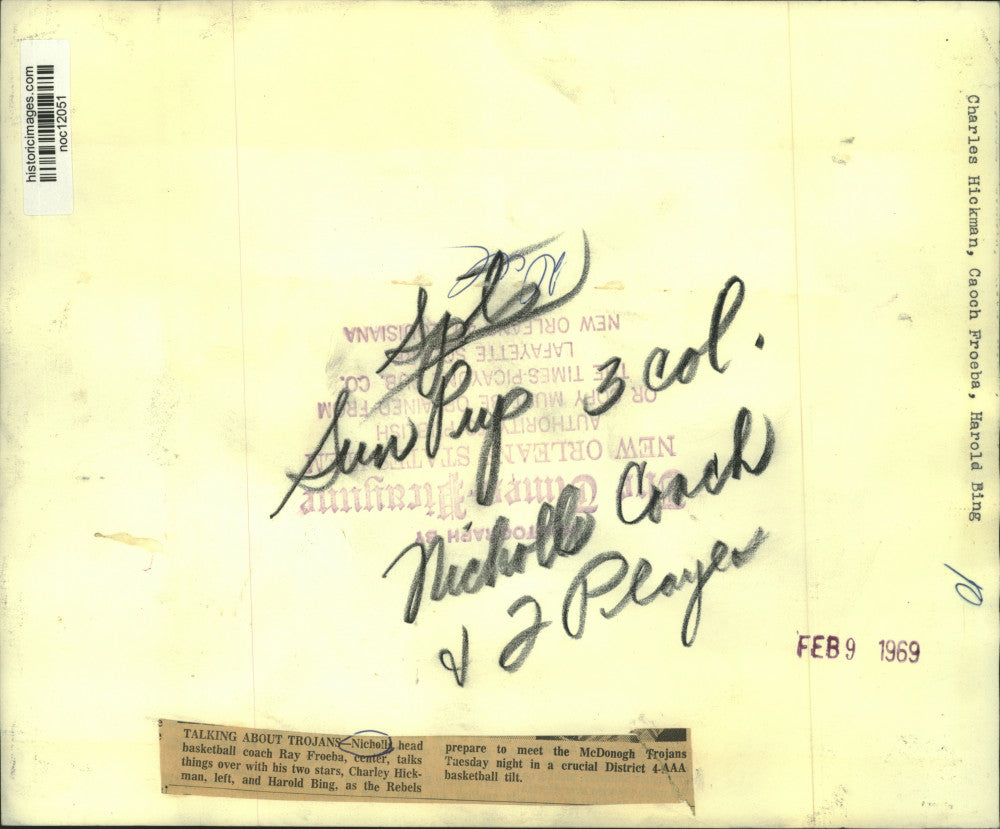 historicimages.com
noc12051
Charles Hickman, Caoch Froeba, Harold Bing
Spls
Sun Pup 3 col.
Nicholls Coach
& 2 Players
PHOTOGRAPH BY
The Times-Picayune
NEW ORLEANS STATES-ITEM
AUTHORITY
OR COPY MUST BE OBTAINED FROM
THE TIMES-PICAYUNE PUB. CO.
LAFAYETTE SQ.
NEW ORLEANS, LOUISIANA
10
FEB 9 1969
TALKING ABOUT TROJANS—Nicholls head
basketball coach Ray Froeba, center, talks
things over with his two stars, Charley Hick-
man, left, and Harold Bing, as the Rebels
prepare to meet the McDonogh Trojans
Tuesday night in a crucial District 4-AAA
basketball tilt.